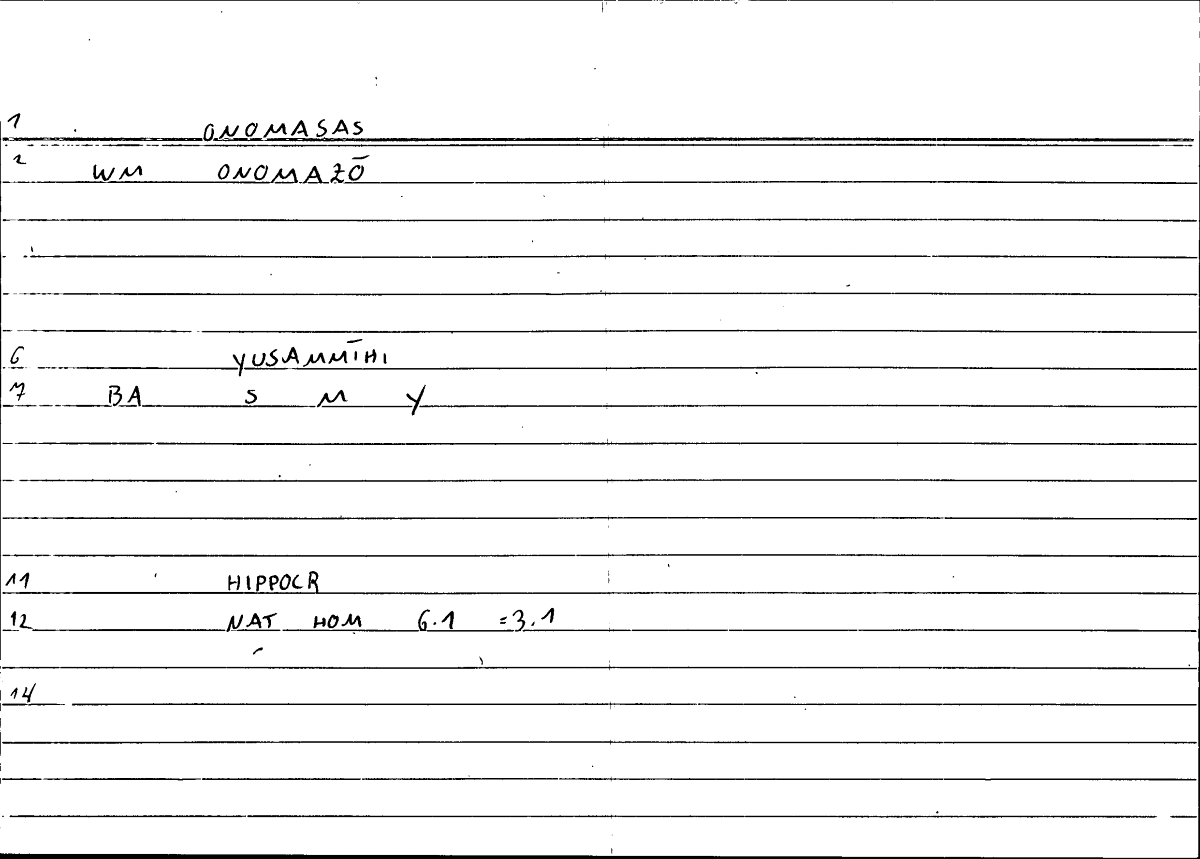 1 ONOMASAS
2 WM ONOMAZŌ
6 YUSAMMĪHI
7 BA S M Y
11 HIPPOCR
12 NAT HOM 6.1 =3.1
14